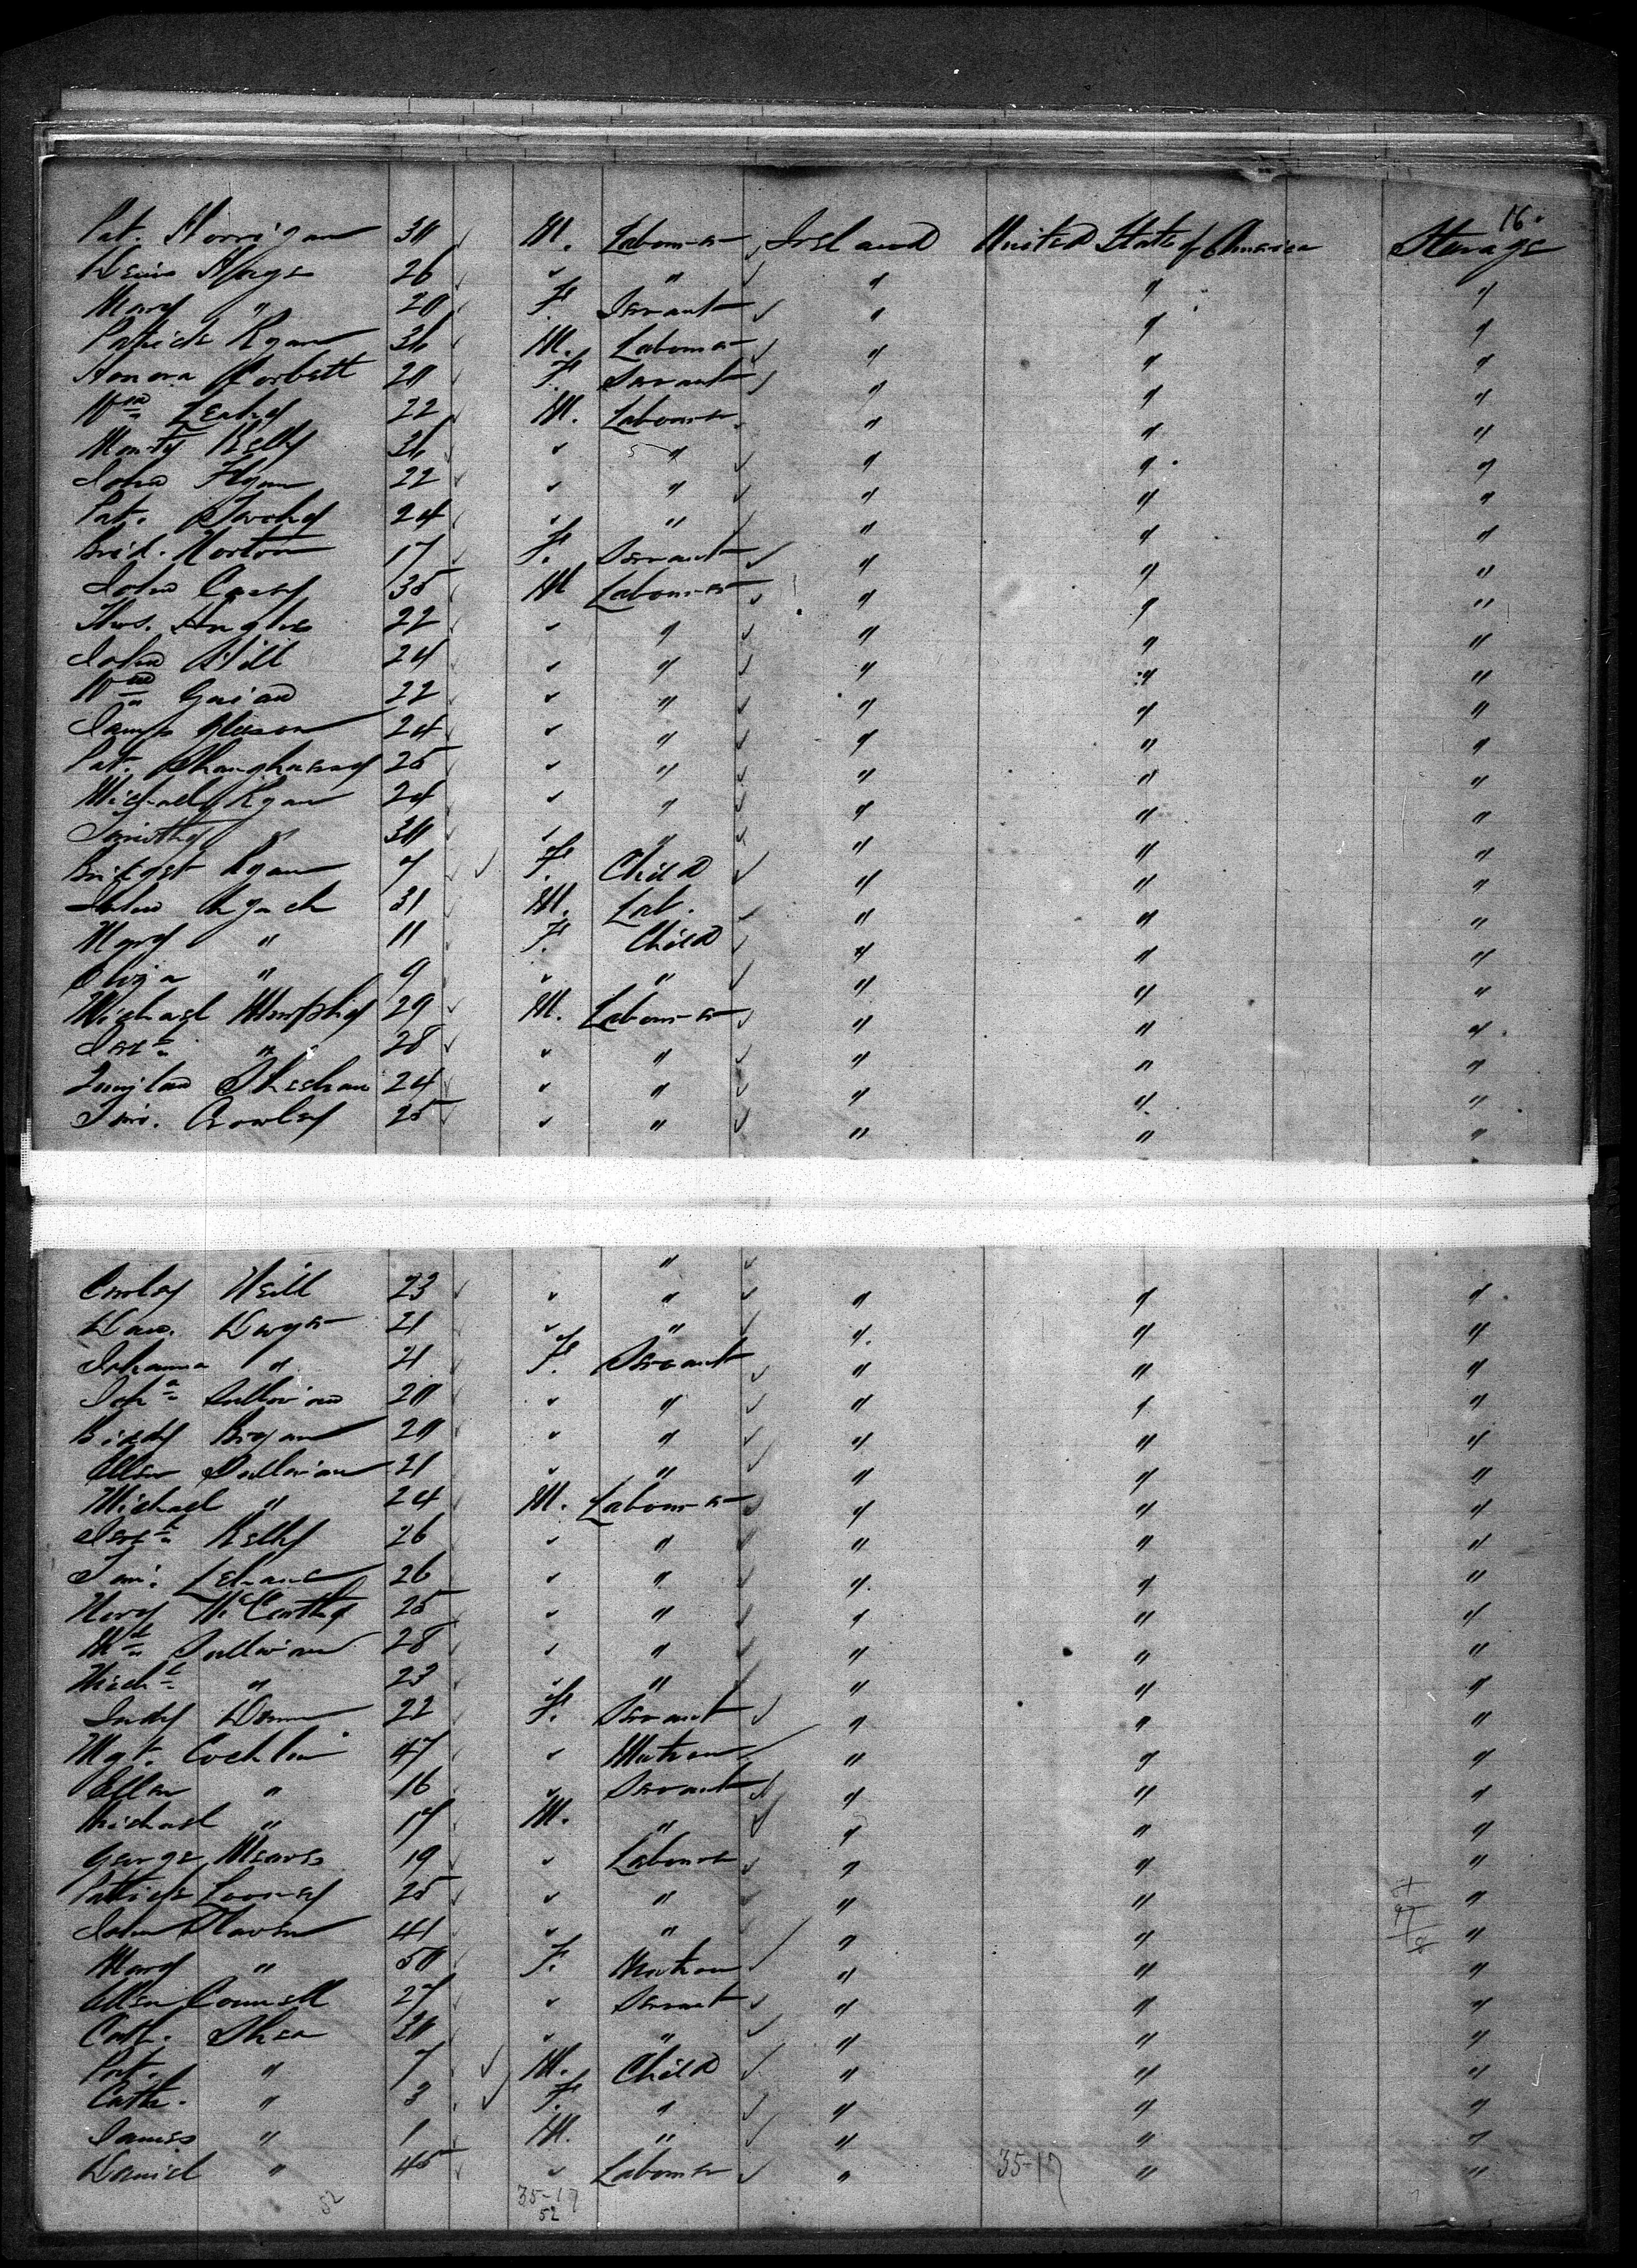 16.
Pat. Horrigan 30 M. Labourer Ireland United State of America Steerage
Denis Hayes 26 " " " " "
Mary " 20 F. Servant " " "
Patrick Ryan 36 M. Labourer " " "
Honora Corbett 20 F. Servant " " "
Wm Leahy 22 M. Labourer " " "
Kelly 36 " " " " "
John Flynn 22 " " " " "
Pat. 24 " " " " "
Brid. Norton 17 F. Servant " " "
John Casey 35 M Labourer " " "
Thos. Hughes 22 " " " " "
John Hill 24 " " " " "
Wm 22 " " " " "
James Gleeson 24 " " " " "
Pat. Shanghnesy 25 " " " " "
Michael Ryan 24 " " " " "
Timothy " 30 " " " " "
Bridget Ryan 7 F. Child " " "
John Lynch 31 M. Lab. " " "
Mary " 11 F. Child " " "
Eliza " 9 " " " " "
Michael Murphy 29 M. Labourer " " "
Jereh " 28 " " " " "
Sheehan 24 " " " " "
Tim. Crowley 25 " " " " "
"
Neill 23 " " " " "
Dan. Dwyer 21 " " " " "
Johanna " 21 F. Servant " " "
Joha Sullivan 20 " " " " "
Biddy Bryan 20 " " " " "
Ellen Sullivan 21 " " " " "
Michael " 24 M. Labourer " " "
Jereh Kelly 26 " " " " "
Tim. Lehane 26 " " " " "
McCarthy 25 " " " " "
Sullivan 28 " " " " "
Michl " 23 " " " " "
Judy Dunn 22 F. Servant " " "
Mgt. Cochlin 47 " Matron " " "
Ellen " 16 " Servant " " "
Michael " 17 M. " " " "
George Mears 19 " Labourer " " "
Patrick Looney 25 " " " " "
John 41 " " " " "
Mary " 50 F. Matron " " "
Ellen Connell 27 " Servant " " "
Cath. Shea 30 " " " " "
Pat. " 7 M. Child " " "
Cath. " 3 F. " " " "
James " 1 M. " " " "
Daniel " 45 " Labourer " 35-17 " "
52 35-17
52